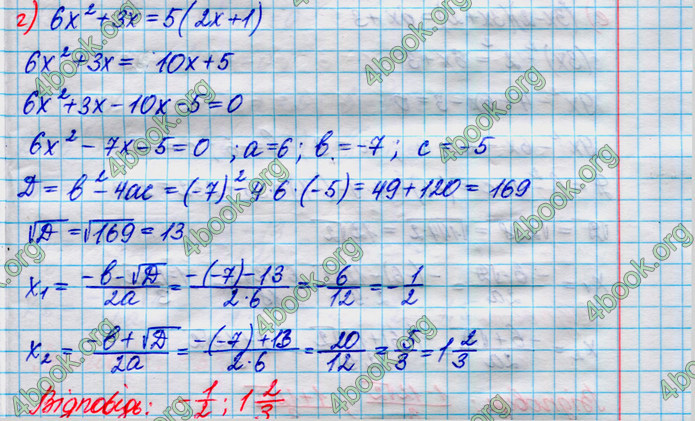 г) 6x² + 3x = 5(2x+1)
6x² + 3x = 10x + 5
6x² + 3x - 10x - 5 = 0
6x² - 7x - 5 = 0 ; a = 6 ; в = -7 ; c = -5
D = в² - 4ac = (-7)² - 4·6·(-5) = 49 + 120 = 169
√D = √169 = 13
x₁ = (-в - √D)/(2a) = (-(-7) - 13)/(2·6) = -6/12 = -1/2
x₂ = (-в + √D)/(2a) = (-(-7) + 13)/(2·6) = 20/12 = 5/3 = 1 2/3
Відповідь: -1/2 ; 1 2/3
4book.org